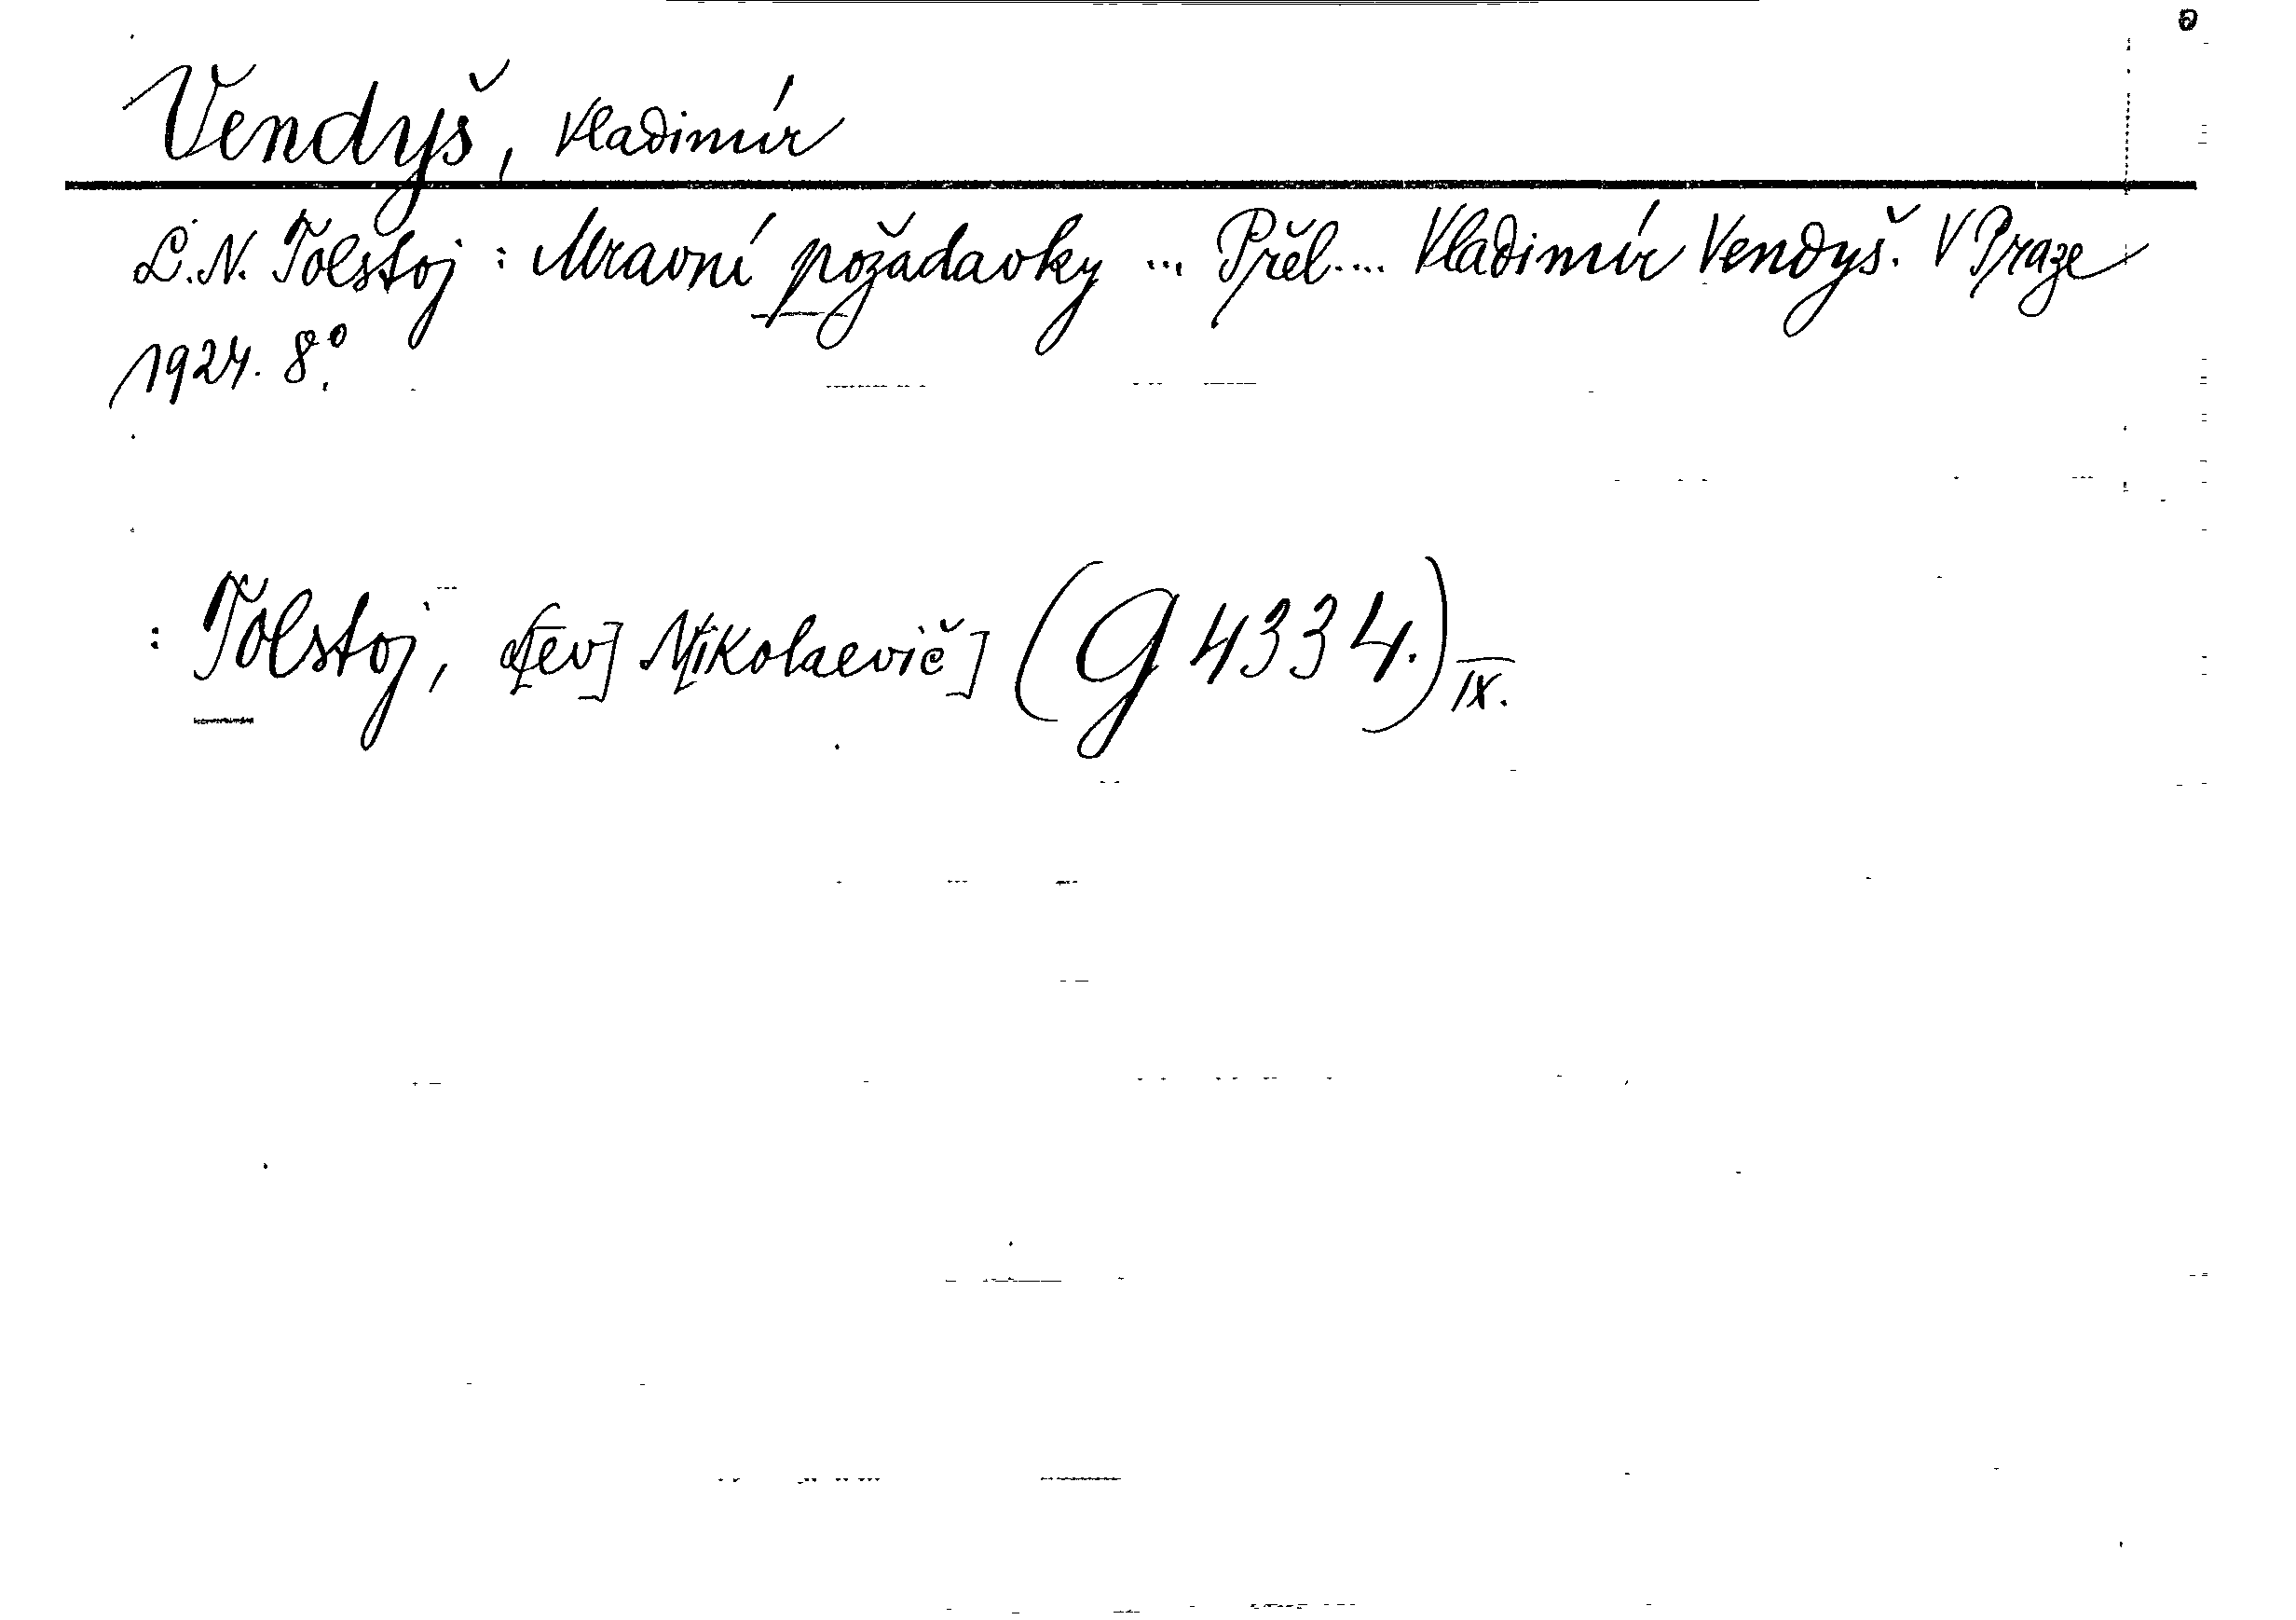 Vendyš, Vladimír
L. N. Tolstoj : Mravní požadavky ... Přel.... Vladimír Vendyš. V Praze
1924. 8°.
: Tolstoj, L[ev] N[ikolaevič] (G 4334.) IX.